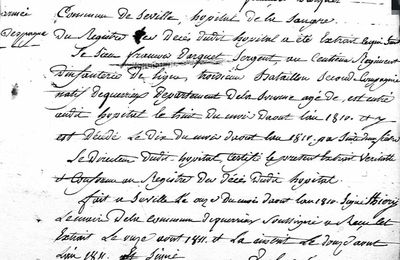 armée
d'espagne
Commune de Seville, hopital de la Sangre
Du Registre des Décés dudit hopital a été Extrait ce qui suit
Le Sieur francois Darguet Sergent, au Centieme Regiment
d'infanterie de ligne, troisieme Bataillon Second Compagnie
natif de querrieu departement de la Somme agé de, est entré
audit hopital le huit du mois daout lan 1810. et y
est décédé Le Dix du mois daout lan 1810. par suite de fievre
Le Directeur dudit hopital, certifie le present Extrait Veritable
et Conforme au Registre des Décés dudit hopital.
fait a Seville Le onze du mois daout lan 1810 Signé
Le maire De la commune de querrieu Soussigné a Reçu cet
Extrait Le onze aout 1811. et La inscrit Le douze aout
Lan 1811. et Signé